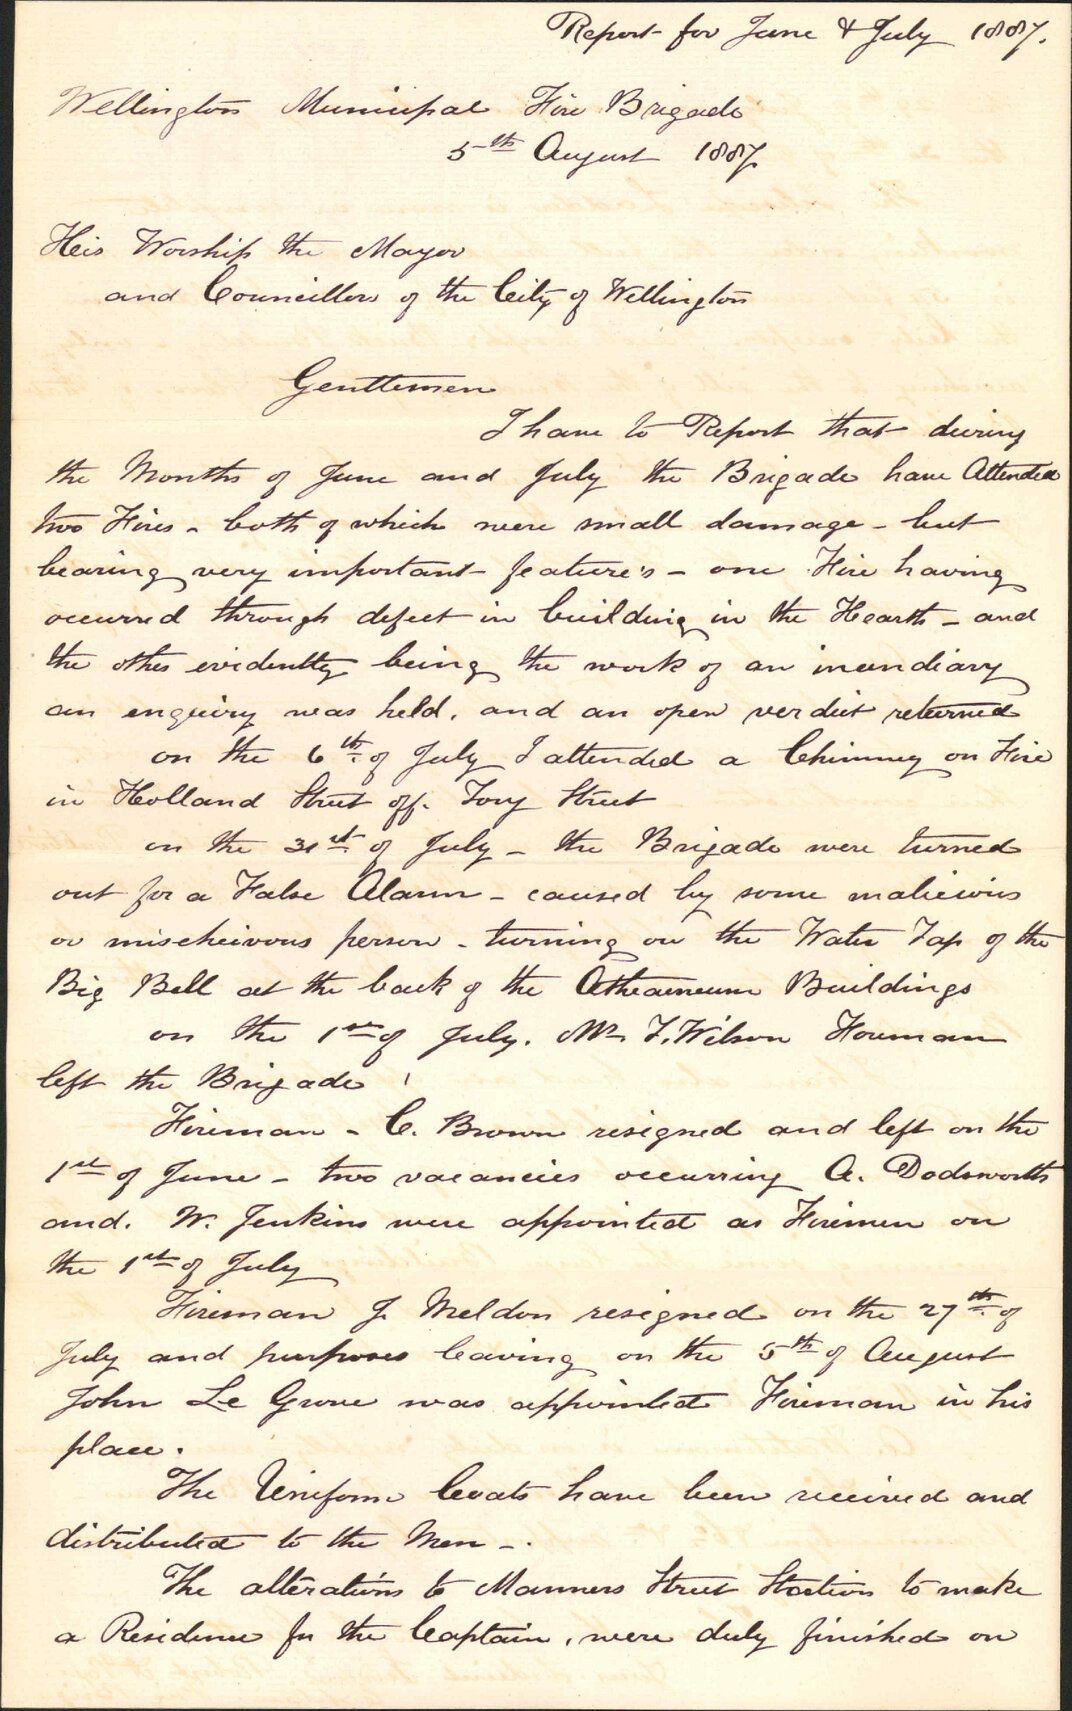 Report for June & July 1887.
Wellington Municipal Fire Brigade
5th August 1887
His Worship the Mayor
and Councillors of the City of Wellington
Gentlemen
I have to Report that during
the Months of June and July the Brigade have Attended
two Fires - both of which were small damage - but
bearing very important feature's - one Fire having
occurred through defect in building in the Hearth - and
the other evidently being the work of an incendiary
an enquiry was held. and an open verdict returned
on the 6th of July I attended a Chimney on Fire
in Holland Street off. Tory Street
on the 31st of July - the Brigade were turned
out for a False Alarm - caused by some malicious
or mischeivous person - turning on the Water Tap of the
Big Bell at the back of the Atheaneum Buildings
on the 1st of July. Mr F. Wilson Foreman
left the Brigade
Fireman - C. Brown resigned and left on the
1st of June - two vacancies occurring A. Dodsworth
and. W. Jenkins were appointed as Firemen on
the 1st of July
Fireman J. Meldon resigned on the 27th of
July and purposes leaving on the 5th of August
John Le Grove was appointed Fireman in his
place.
The Uniform Coats have been received and
distributed to the Men -.
The alterations to Manners Street Station to make
a Residence for the Captain. were duly finished on